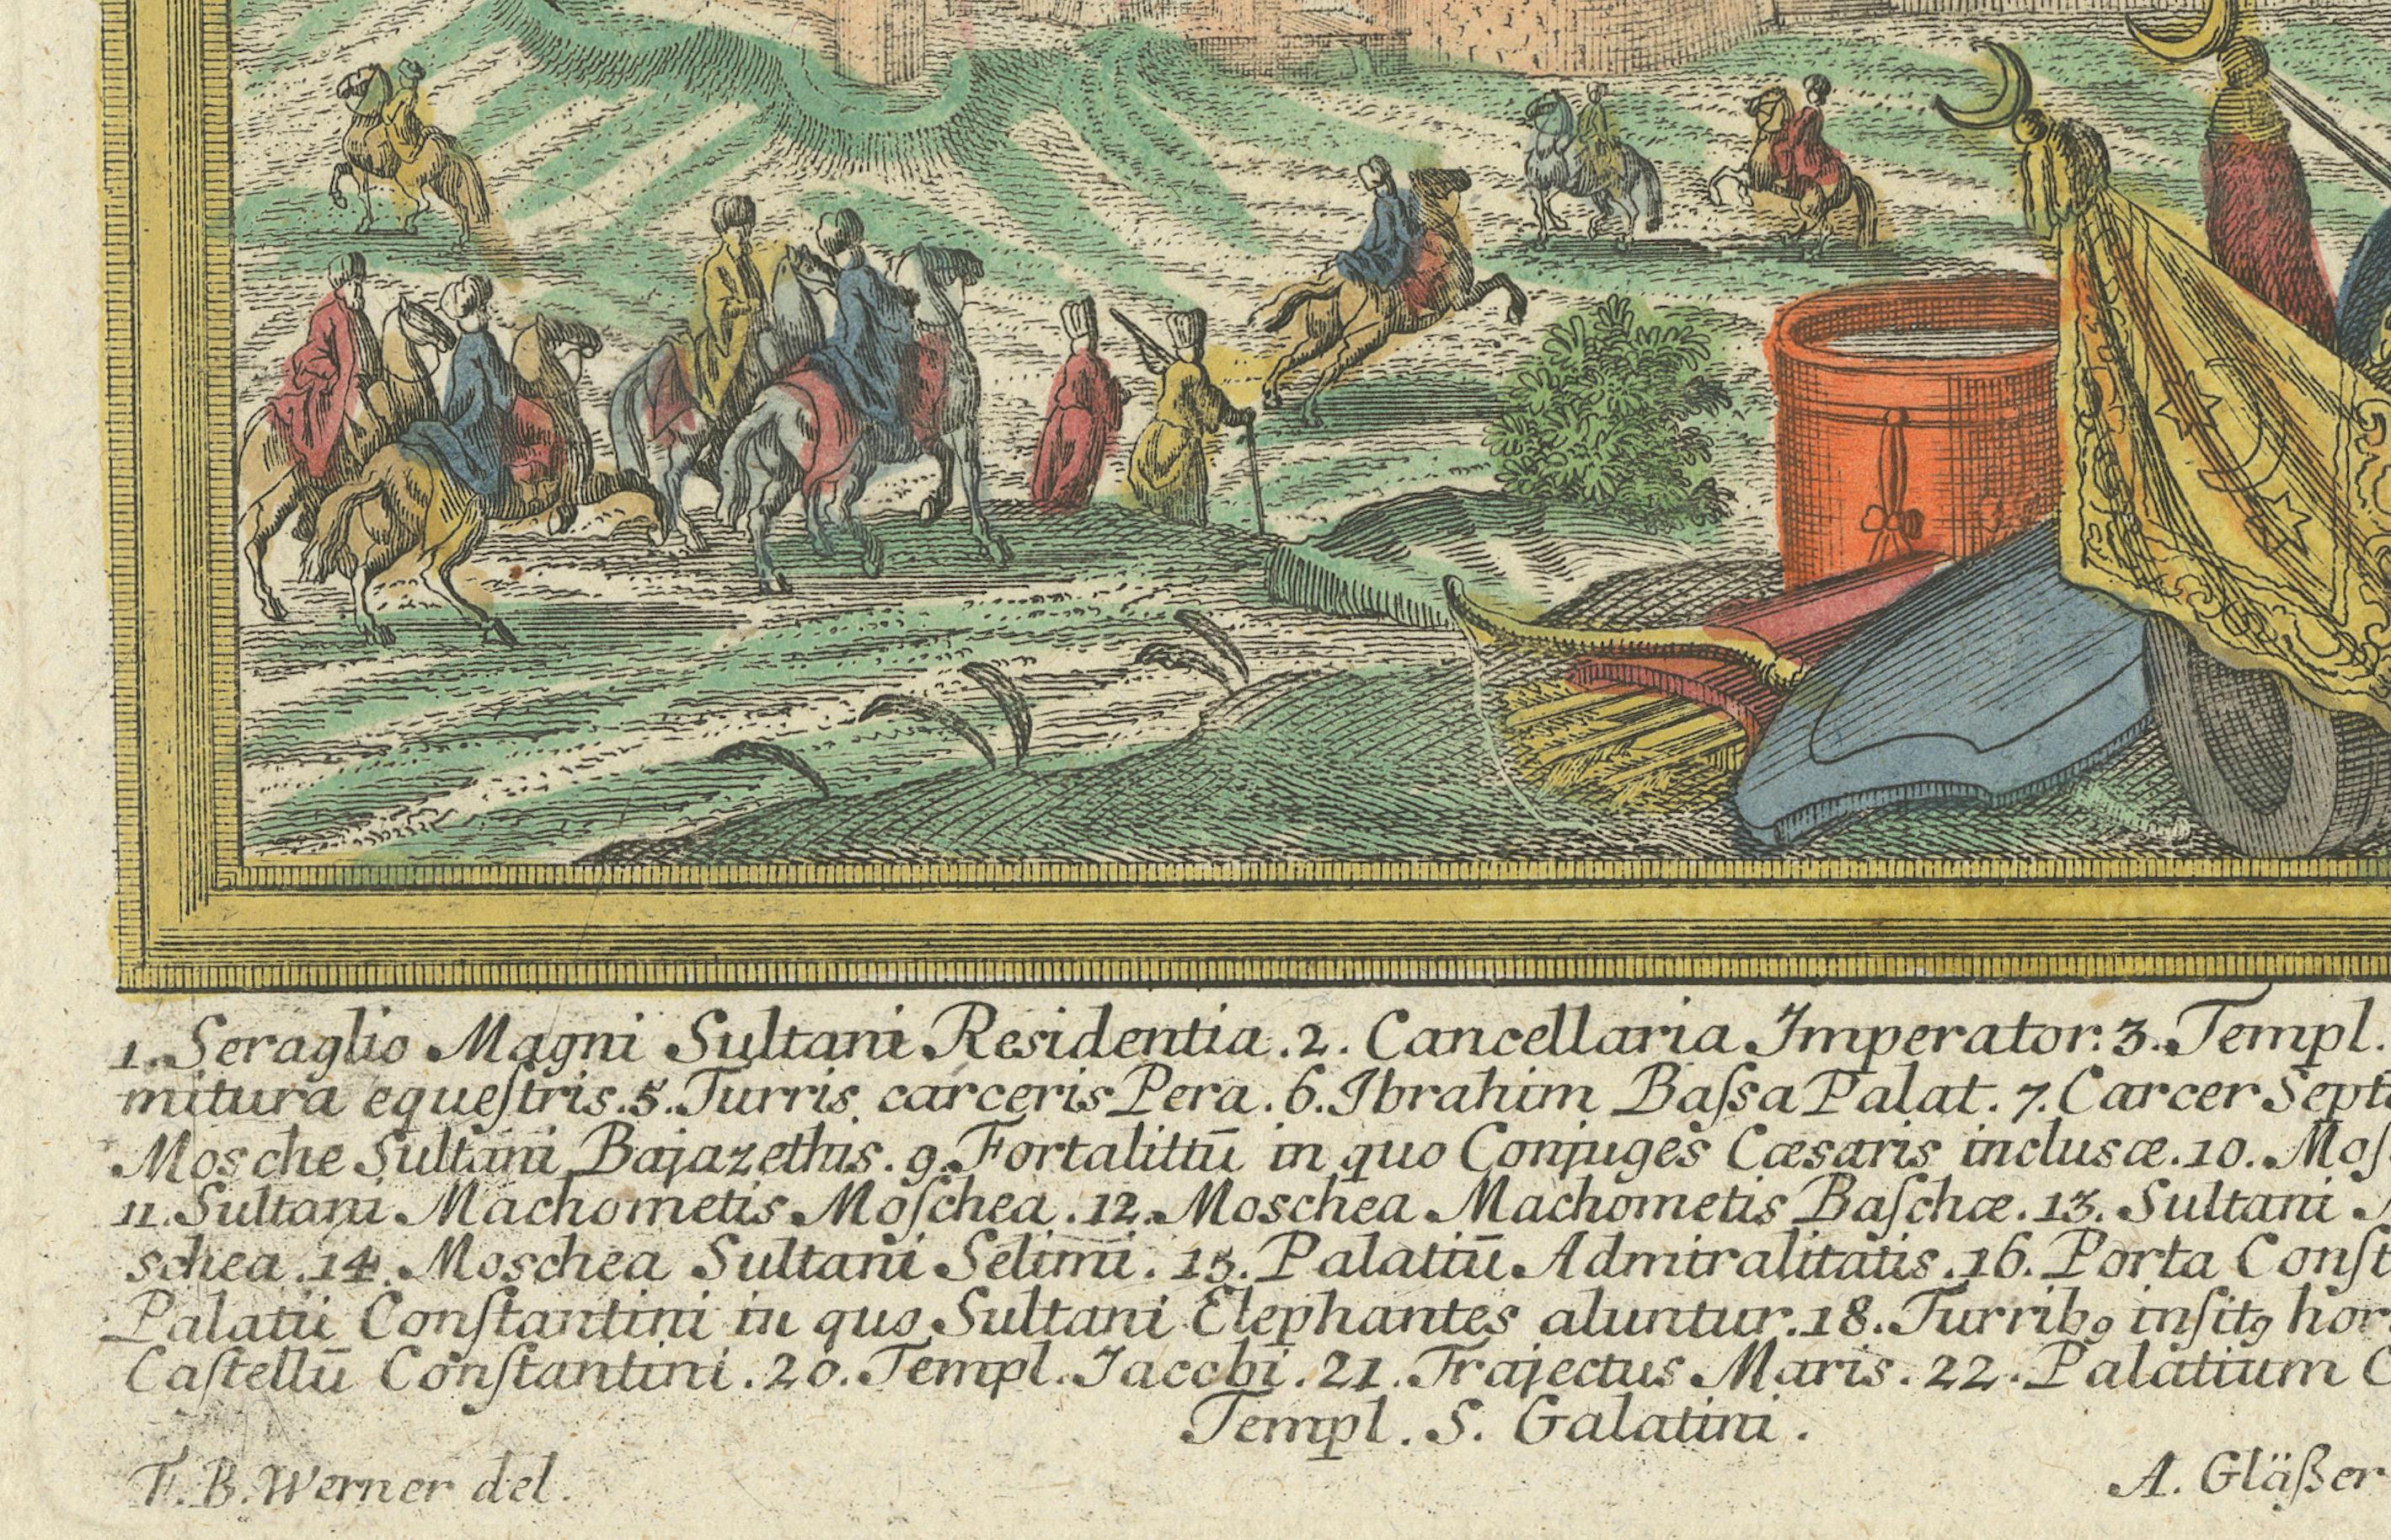 1. Seraglio Magni Sultani Residentia. 2. Cancellaria Imperator: 3. Templ.
mitura equeſtris. 5. Turris carceris Pera. 6. Ibrahim Baſsa Palat. 7. Carcer Sept
Mosche Sultani Bajazethis. 9. Fortalittū in quo Conjuges Cæsaris inclusæ. 10. Moſ
11. Sultani Machometis Moſchea. 12. Moschea Machometis Baſchæ. 13. Sultani
schea. 14. Moschea Sultani Selimi. 15. Palatiū Admiralitatis. 16. Porta Conſt
Palatii Conſtantini in quo Sultani Elephantes aluntur. 18. Turribꝯ inſitꝯ hor
Caſtellū Conſtantini. 20. Templ. Jacobi. 21. Trajectus Maris. 22. Palatium C
Templ. S. Galatini.
F. B. Werner del.
A. Gläßer